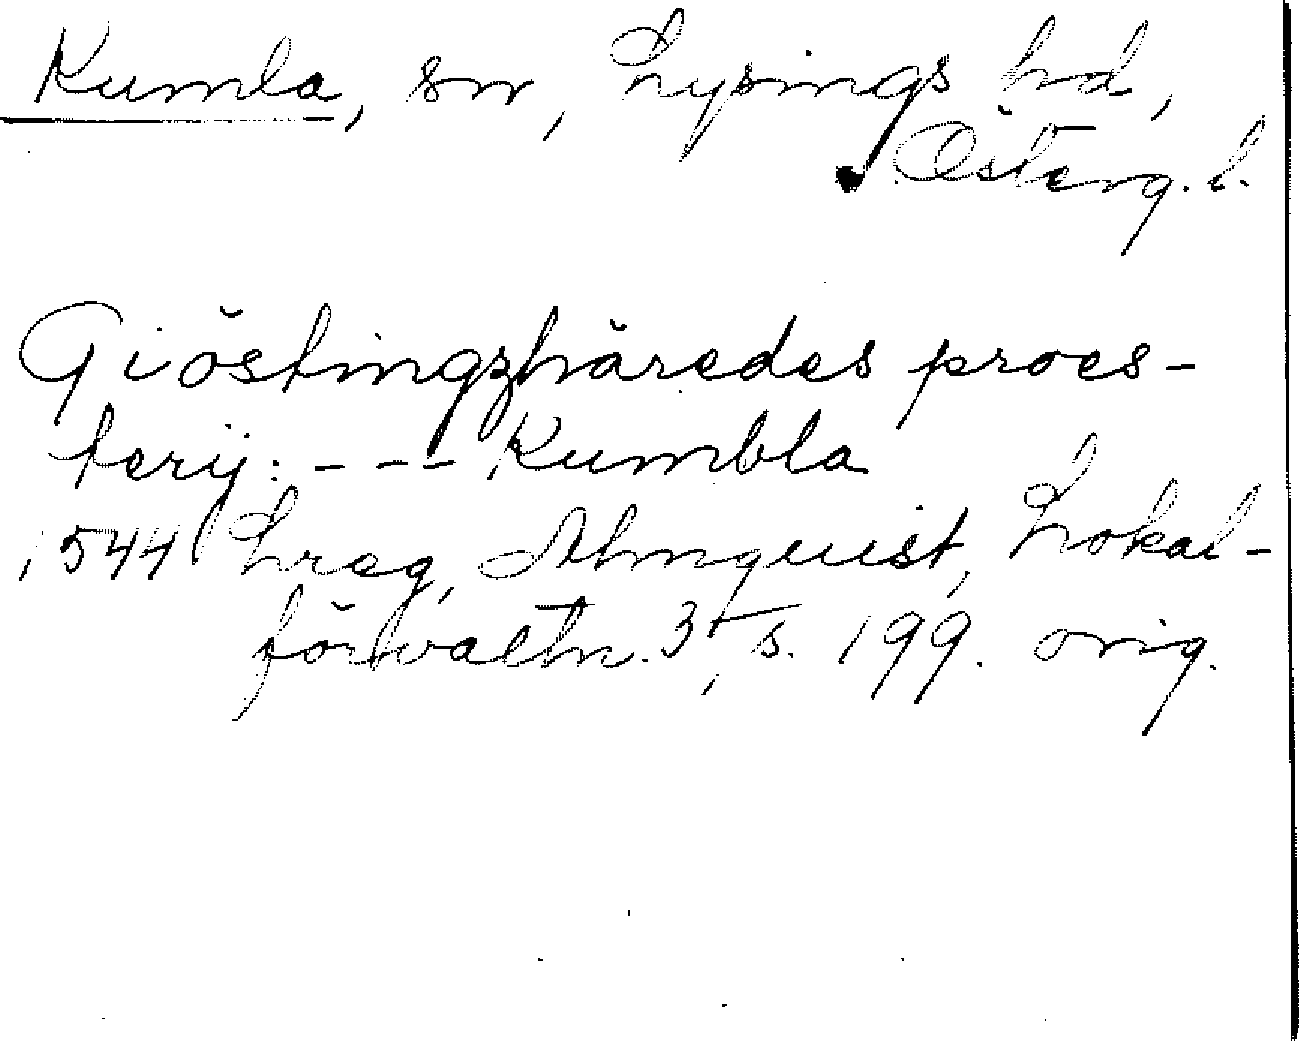 Kumla, sn, Lysings hd,
Österg. l.
Giöstingzhäredes proes-
terij: --- Kumbla
1544 Lreg, Almquist, Lokal-
förvaltn. 3, s. 199. orig.